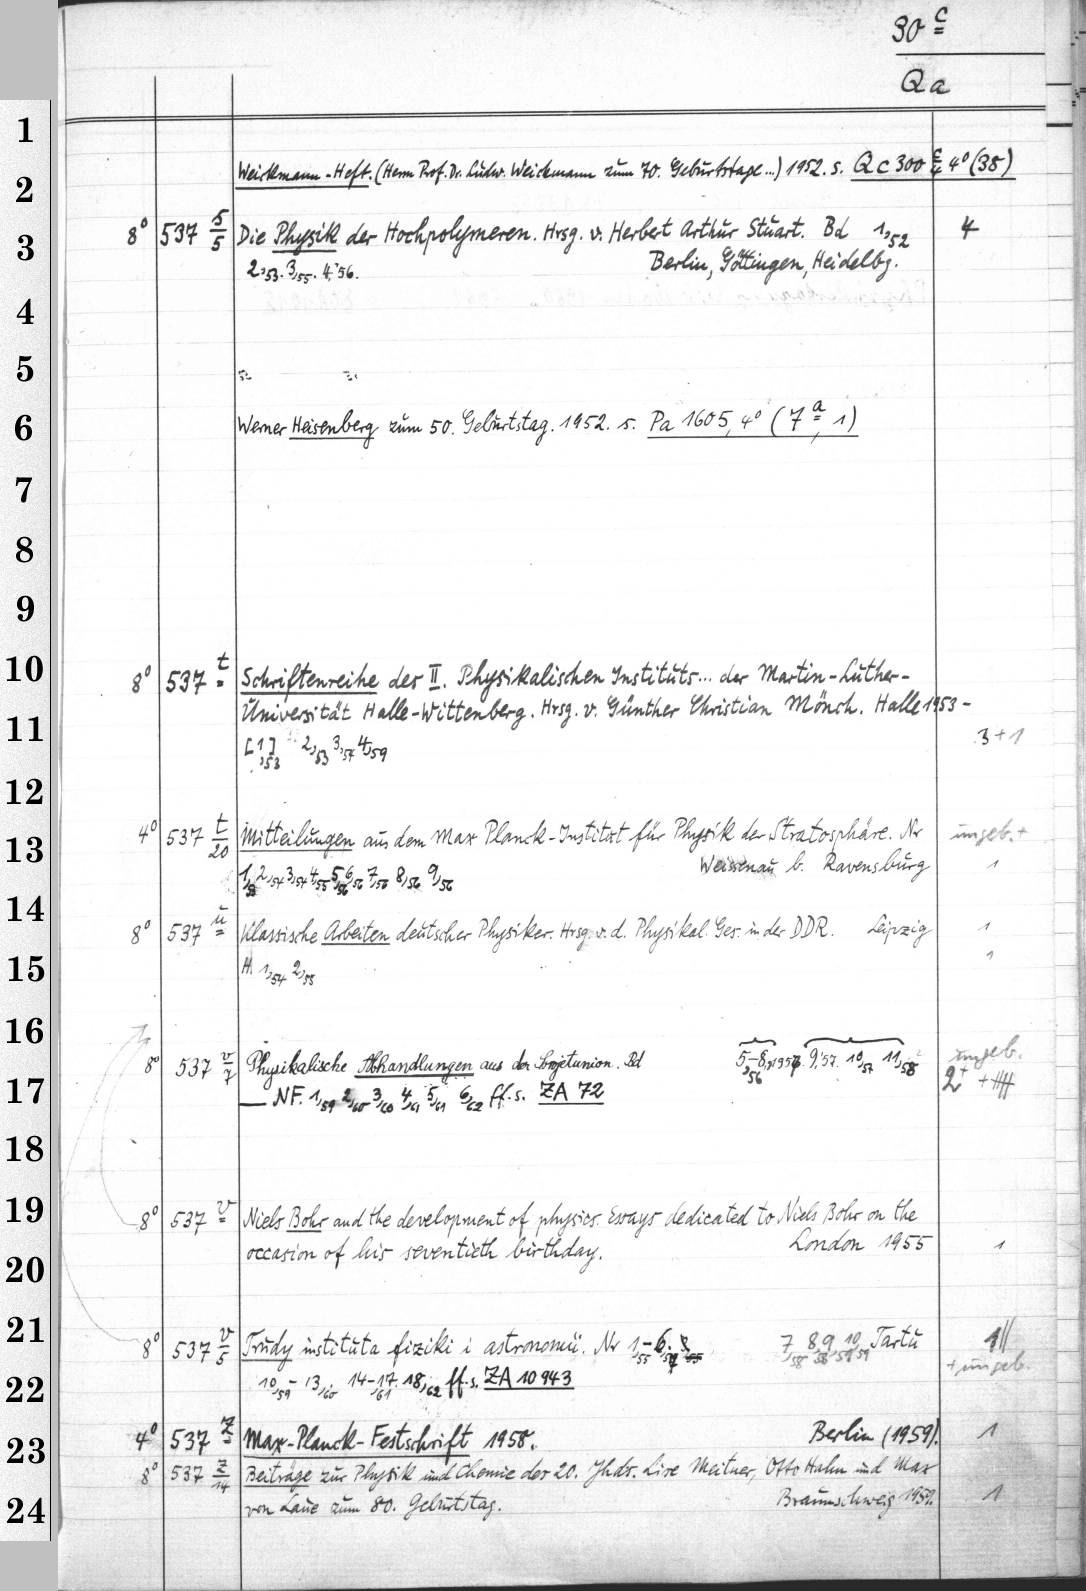 30 c
Qa
1
2
3
4
5
6
7
8
9
10
11
12
13
14
15
16
17
18
19
20
21
22
23
24
Weickmann-Heft. (Herrn Prof. Dr. Ludw. Weickmann zum 70. Geburtstage...) 1952. s. Qc 300 c/4 4° (38)
8° 537 s/5 Die Physik der Hochpolymeren. Hrsg. v. Herbert Arthur Stuart. Bd 1,52 4
2,53. 3,55. 4,'56. Berlin, Göttingen, Heidelbg.
Werner Heisenberg zum 50. Geburtstag. 1952. s. Pa 1605, 4° (7 a, 1)
8° 537 t Schriftenreihe des II. Physikalischen Instituts... der Martin-Luther-
Universität Halle-Wittenberg. Hrsg. v. Günther Christian Mönch. Halle 1953-
[1],53 2,53 3,54 4,59 3+1
4° 537 t/20 Mitteilungen aus dem Max Planck-Institut für Physik der Stratosphäre. Nr ungeb.+
Weissenau b. Ravensburg 1
1,53 2,54 3,54 4,55 5,56 6,56 7,56 8,56 9,56
8° 537 u Klassische Arbeiten deutscher Physiker. Hrsg. v. d. Physikal. Ges. in der DDR. Leipzig 1
H. 1,54 2,55 1
8° 537 v/7 Physikalische Abhandlungen aus der Sowjetunion. Bd 5-8,1957 9,'57 10,57 11,58 ungeb.
,56
— NF. 1,59 2,60 3,60 4,61 5,61 6,62 ff. s. ZA 72 2+
8° 537 v Niels Bohr and the development of physics. Essays dedicated to Niels Bohr on the
occasion of his seventieth birthday. London 1955 1
8° 537 v/5 Trudy instituta fiziki i astronomii. Nr 1,55-6,57 7,58 8,58 9,59 10,59 Tartu
+ ungeb.
10,59-13,60 14-17,61 18,62 ff. s. ZA 10943
4° 537 z Max-Planck-Festschrift 1958. Berlin (1959). 1
8° 537 z/14 Beiträge zur Physik und Chemie des 20. Jhds. Lise Meitner, Otto Hahn und Max
von Laue zum 80. Geburtstag. Braunschweig 1959. 1